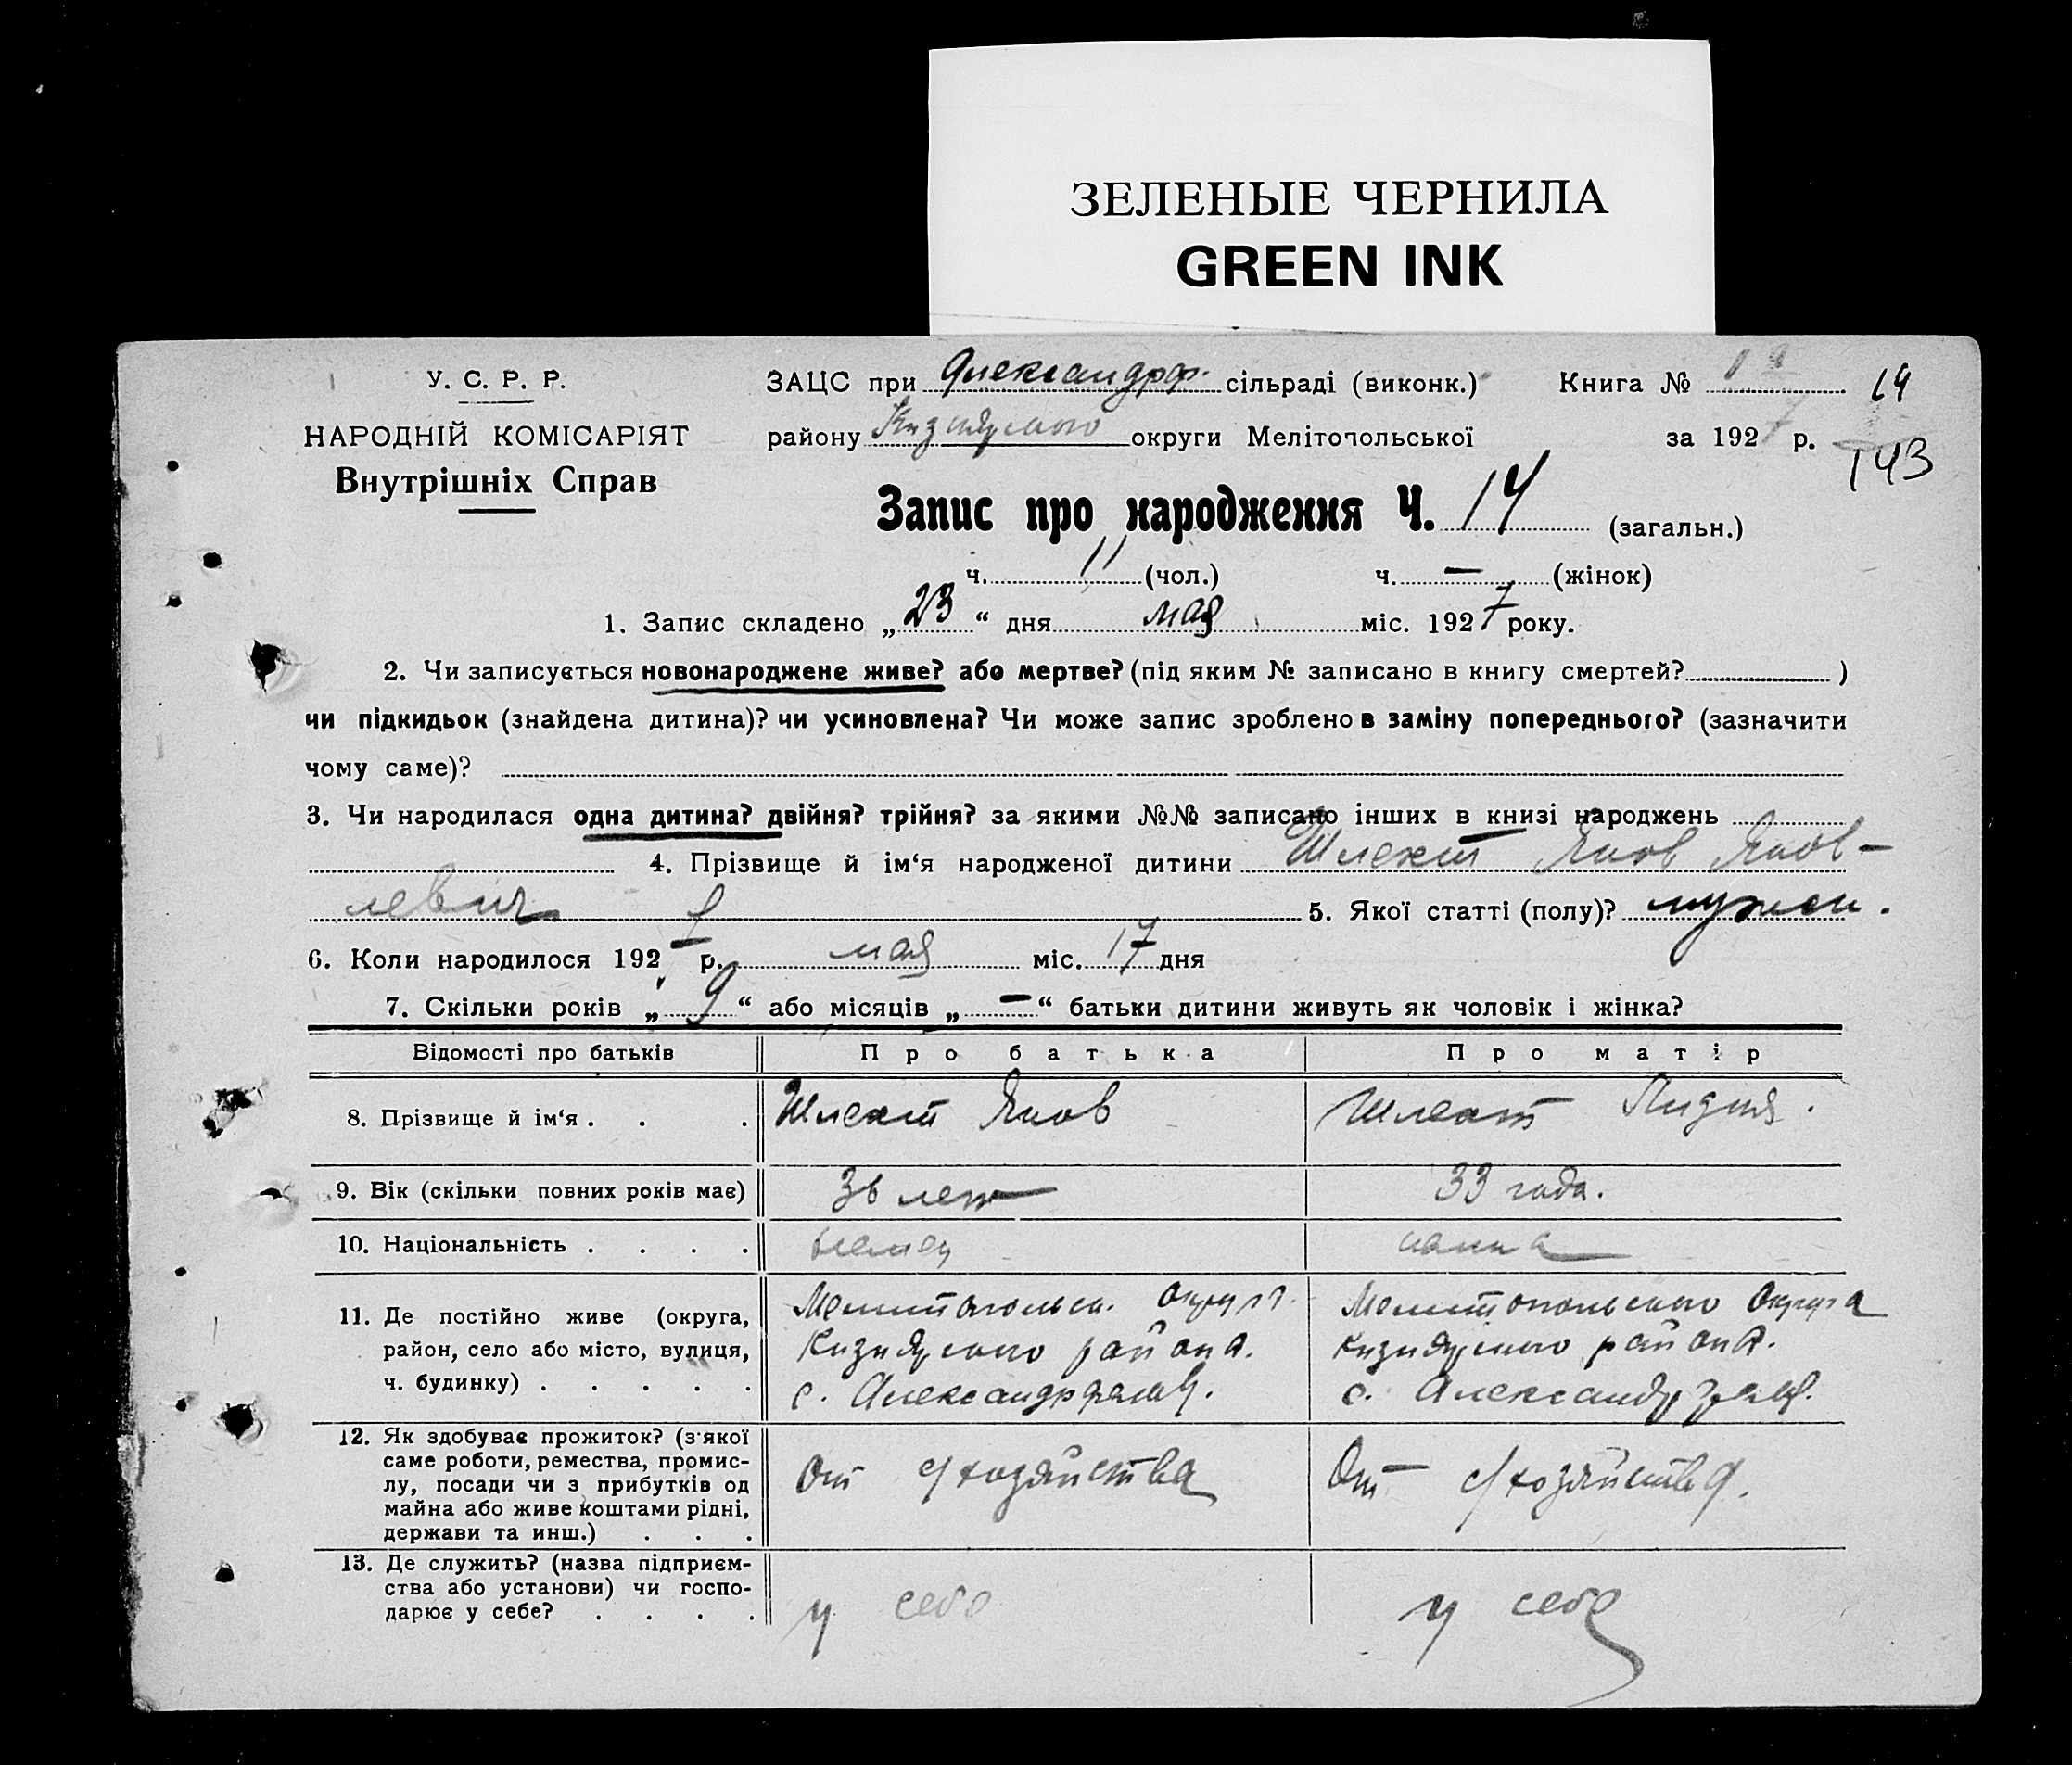 ЗЕЛЕНЫЕ ЧЕРНИЛА
GREEN INK
У. С. Р. Р.
НАРОДНІЙ КОМІСАРІЯТ
Внутрішніх Справ
ЗАЦС при Александрф. сільраді (виконк.) Книга № 14
району Кизиярского округи Мелітопольської за 1927 р. 143
Запис про народження Ч. 14 (загальн.)
ч. 11 (чол.) ч. — (жінок)
1. Запис складено „23“ дня мая міс. 1927 року.
2. Чи записується новонароджене живе? або мертве? (під яким № записано в книгу смертей? )
чи підкидьок (знайдена дитина)? чи усиновлена? Чи може запис зроблено в заміну попереднього? (зазначити
чому саме)?
3. Чи народилася одна дитина? двійня? трійня? за якими №№ записано інших в книзі народжень
4. Прізвище й ім‘я народженої дитини Шлехт Яков Яков-
левич 5. Якої статті (полу)? мужск.
6. Коли народилося 1927 р. мая міс. 17 дня
7. Скільки років „9“ або місяців „—“ батьки дитини живуть як чоловік і жінка?
Відомості про батьків Про батька Про матір
8. Прізвище й ім‘я . . . Шлехт Яков Шлехт Лидия.
9. Вік (скільки повних років має) 36 лет 33 года.
10. Національність . . . . немец немка
11. Де постійно живе (округа, Мелитопольск. округа Мелитопольского Округа
район, село або місто, вулиця, Кизиярского района. Кизиярского района.
ч. будинку) . . . . . с. Александрфельд. с. Александрфельд.
12. Як здобуває прожиток? (з‘якої
саме роботи, ремества, промис-
лу, посади чи з прибутків од От с/хозяйства От с/хозяйства.
майна або живе коштами рідні,
держави та инш.) . . .
13. Де служить? (назва підприєм-
ства або установи) чи госпо-
дарює у себе? . . . . у себя у себя